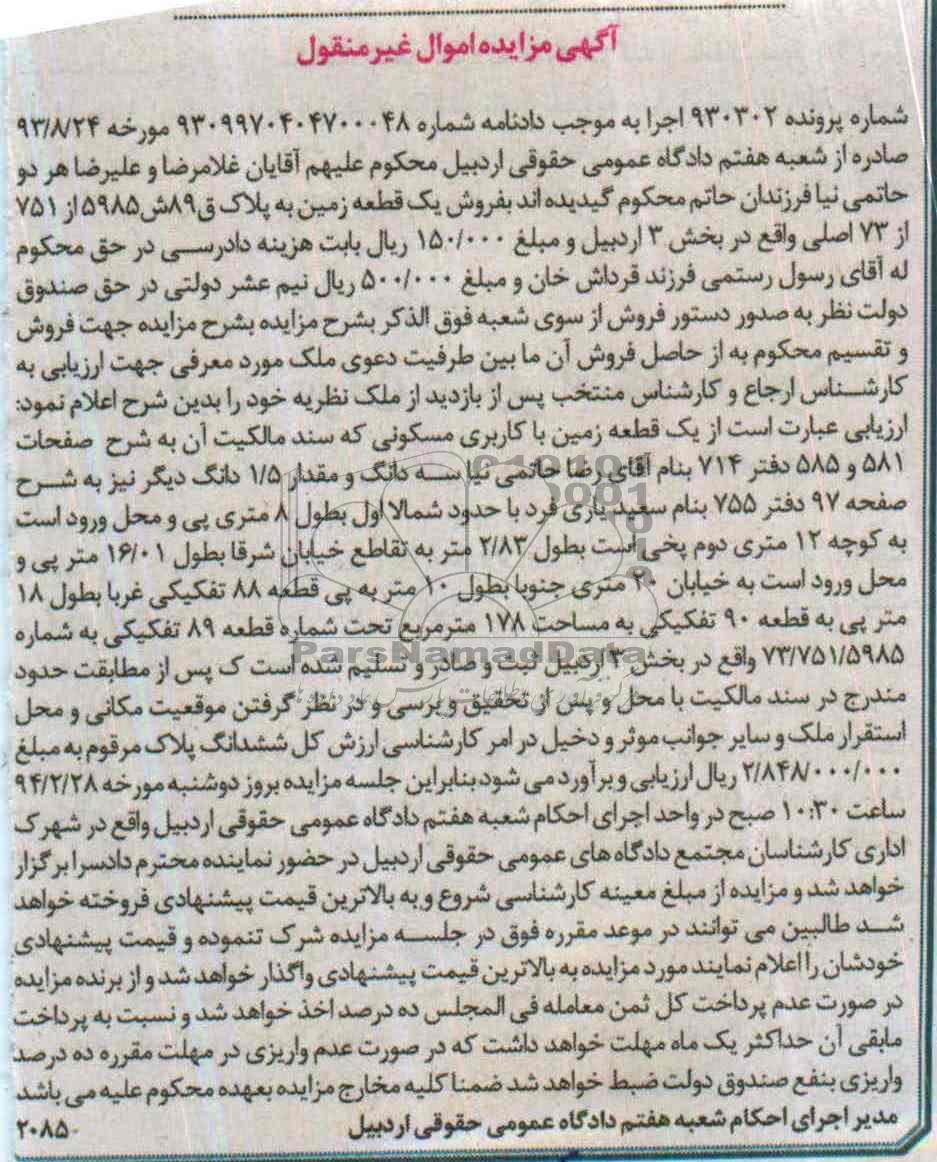 آگهی مزایده اموال غیر منقول
شماره پرونده ۹۳۰۳۰۲ اجرا به موجب دادنامه شماره ۹۳۰۹۹۷۰۴۰۴۷۰۰۰۴۸ مورخه ۹۳/۸/۲۴
صادره از شعبه هفتم دادگاه عمومی حقوقی اردبیل محکوم علیهم آقایان غلامرضا و علیرضا هر دو
حاتمی نیا فرزندان حاتم محکوم گیدیده اند بفروش یک قطعه زمین به پلاک ق۸۹ش۵۹۸۵از ۷۵۱
از ۷۳ اصلی واقع در بخش ۳ اردبیل و مبلغ ۱۵۰/۰۰۰ ریال بابت هزینه دادرسی در حق محکوم
له آقای رسول رستمی فرزند قرداش خان و مبلغ ۵۰۰/۰۰۰ ریال نیم عشر دولتی در حق صندوق
دولت نظر به صدور دستور فروش از سوی شعبه فوق الذکر بشرح مزایده بشرح مزایده جهت فروش
و تقسیم محکوم به از حاصل فروش آن ما بین طرفیت دعوی ملک مورد معرفی جهت ارزیابی به
کارشناس ارجاع و کارشناس منتخب پس از بازدید از ملک نظریه خود را بدین شرح اعلام نمود:
ارزیابی عبارت است از یک قطعه زمین با کاربری مسکونی که سند مالکیت آن به شرح صفحات
۵۸۱ و ۵۸۵ دفتر ۷۱۴ بنام آقای رضا حاتمی نیا سه دانگ و مقدار ۱/۵ دانگ دیگر نیز به شرح
صفحه ۹۷ دفتر ۷۵۵ بنام سعید یاری فرد با حدود شمالا اول بطول ۸ متری پی و محل ورود است
به کوچه ۱۲ متری دوم پخی است بطول ۲/۸۳ متر به تقاطع خیابان شرقا بطول ۱۶/۰۱ متر پی و
محل ورود است به خیابان ۲۰ متری جنوبا بطول ۱۰ متر به پی قطعه ۸۸ تفکیکی غربا بطول ۱۸
متر پی به قطعه ۹۰ تفکیکی به مساحت ۱۷۸ مترمربع تحت شماره قطعه ۸۹ تفکیکی به شماره
۷۳/۷۵۱/۵۹۸۵ واقع در بخش ۳ اردبیل ثبت و صادر و تسلیم شده است ک پس از مطابقت حدود
مندرج در سند مالکیت با محل و پس از تحقیق و برسی و در نظر گرفتن موقعیت مکانی و محل
استقرار ملک و سایر جوانب موثر و دخیل در امر کارشناسی ارزش کل ششدانگ پلاک مرقوم به مبلغ
۲/۸۴۸/۰۰۰/۰۰۰ ریال ارزیابی و برآورد می شود بنابراین جلسه مزایده بروز دوشنبه مورخه ۹۴/۲/۲۸
ساعت ۱۰:۳۰ صبح در واحد اجرای احکام شعبه هفتم دادگاه عمومی حقوقی اردبیل واقع در شهرک
اداری کارشناسان مجتمع دادگاه های عمومی حقوقی اردبیل در حضور نماینده محترم دادسرا برگزار
خواهد شد و مزایده از مبلغ معینه کارشناسی شروع و به بالاترین قیمت پیشنهادی فروخته خواهد
شد طالبین می توانند در موعد مقرره فوق در جلسه مزایده شرک تنموده و قیمت پیشنهادی
خودشان را اعلام نمایند مورد مزایده به بالاترین قیمت پیشنهادی واگذار خواهد شد و از برنده مزایده
در صورت عدم پرداخت کل ثمن معامله فی المجلس ده درصد اخذ خواهد شد و نسبت به پرداخت
مابقی آن حداکثر یک ماه مهلت خواهد داشت که در صورت عدم واریزی در مهلت مقرره ده درصد
واریزی بنفع صندوق دولت ضبط خواهد شد ضمنا کلیه مخارج مزایده بعهده محکوم علیه می باشد
مدیر اجرای احکام شعبه هفتم دادگاه عمومی حقوقی اردبیل
۲۰۸۵
ParsNamadData